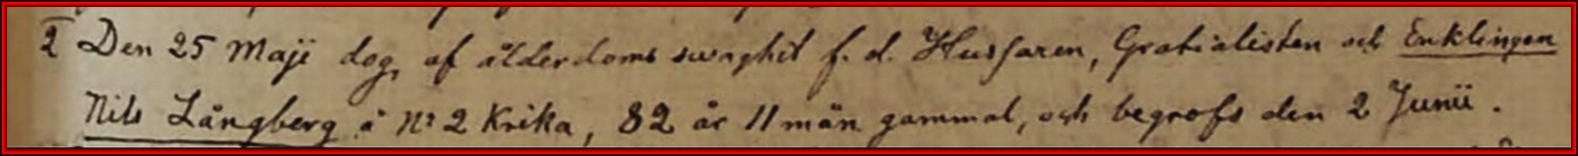 2 Den 25 Maji dog, af ålderdoms swaghet f. d. Husaren, Gratialisten och Enklingen
Nils Långberg å N:2 Krika, 82 år 11 mån gammal, och begrofs den 2 Junii.